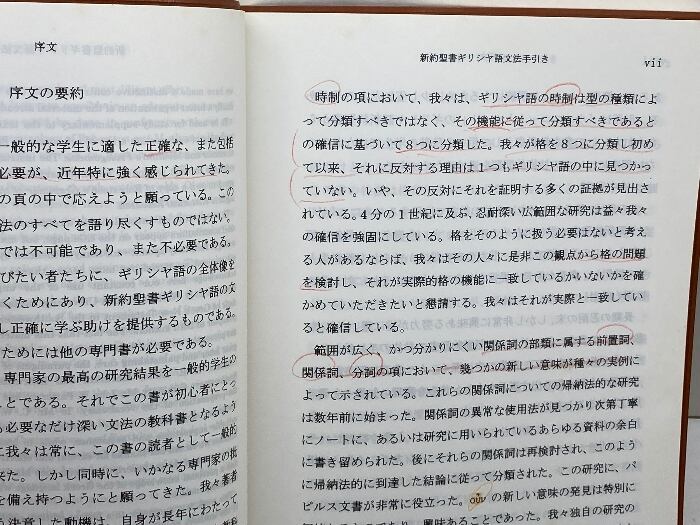 序文
序文の要約
一般的な学生に適した正確な、また包括
必要が、近年特に強く感じられてきた。
の頁の中で応えようと願っている。この
法のすべてを語り尽くすものではない。
では不可能であり、また不必要である。
びたい者たちに、ギリシヤ語の全体像を
くためにあり、新約聖書ギリシヤ語の文
し正確に学ぶ助けを提供するものである。
ためには他の専門書が必要である。
専門家の最高の研究結果を一般的学生の
ことである。それでこの書が初心者にとっ
も必要なだけ深い文法の教科書となるよう
に我々は常に、この書の読者として一般的
来た。しかし同時に、いかなる専門家の批
を備え持つようにと願ってきた。我々著者
う決意した動機は、自身が長年にわたって
新約聖書ギリシヤ語文法手引き
vii
時制の項において、我々は、ギリシヤ語の時制は型の種類によ
って分類すべきではなく、その機能に従って分類すべきであると
の確信に基づいて8つに分類した。我々が格を8つに分類し初め
て以来、それに反対する理由は1つもギリシヤ語の中に見つかっ
ていない。いや、その反対にそれを証明する多くの証拠が見出さ
れている。4分の1世紀に及ぶ、忍耐深い広範囲な研究は益々我々
の確信を強固にしている。格をそのように扱う必要はないと考え
る人があるならば、我々はその人々に是非この観点から格の問題
を検討し、それが実際的格の機能に一致しているかいないかを確
かめていただきたいと懇請する。我々はそれが実際と一致してい
ると確信している。
範囲が広く、かつ分かりにくい関係詞の部類に属する前置詞、
関係詞、分詞の項において、幾つかの新しい意味が種々の実例に
よって示されている。これらの関係詞についての帰納法的な研究
は数年前に始まった。関係詞の異常な使用法が見つかり次第丁寧
にノートに、あるいは研究に用いられているあらゆる資料の余白
に書き留められた。後にそれらの関係詞は再検討され、このよう
に帰納法的に到達した結論に従って分類された。この研究に、パ
ピルス文書が非常に役立った。οὖν の新しい意味の発見は特別に